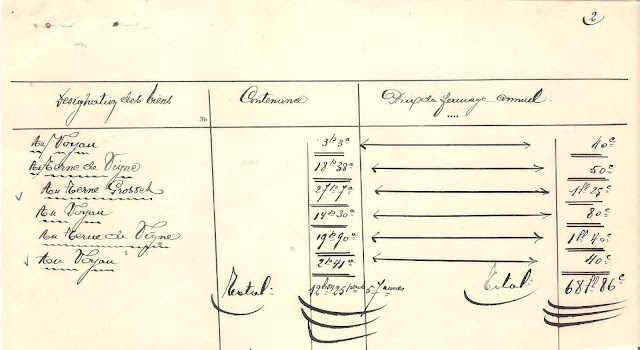 2
Désignation des biens Contenance Prix du fermage annuel
Au Voyau 3p 3a 40c
Au Terne de Vigne 18p 38a 50c
Au Terne Grosset 27p 7a 1f 25c
Au Voyau 14p 30a 80c
Au Terne de Vigne 19p 90a 1f 40c
Au Voyau 2p 41a 40c
Total: 12bon 25 57 aunes Total: 68f 86c